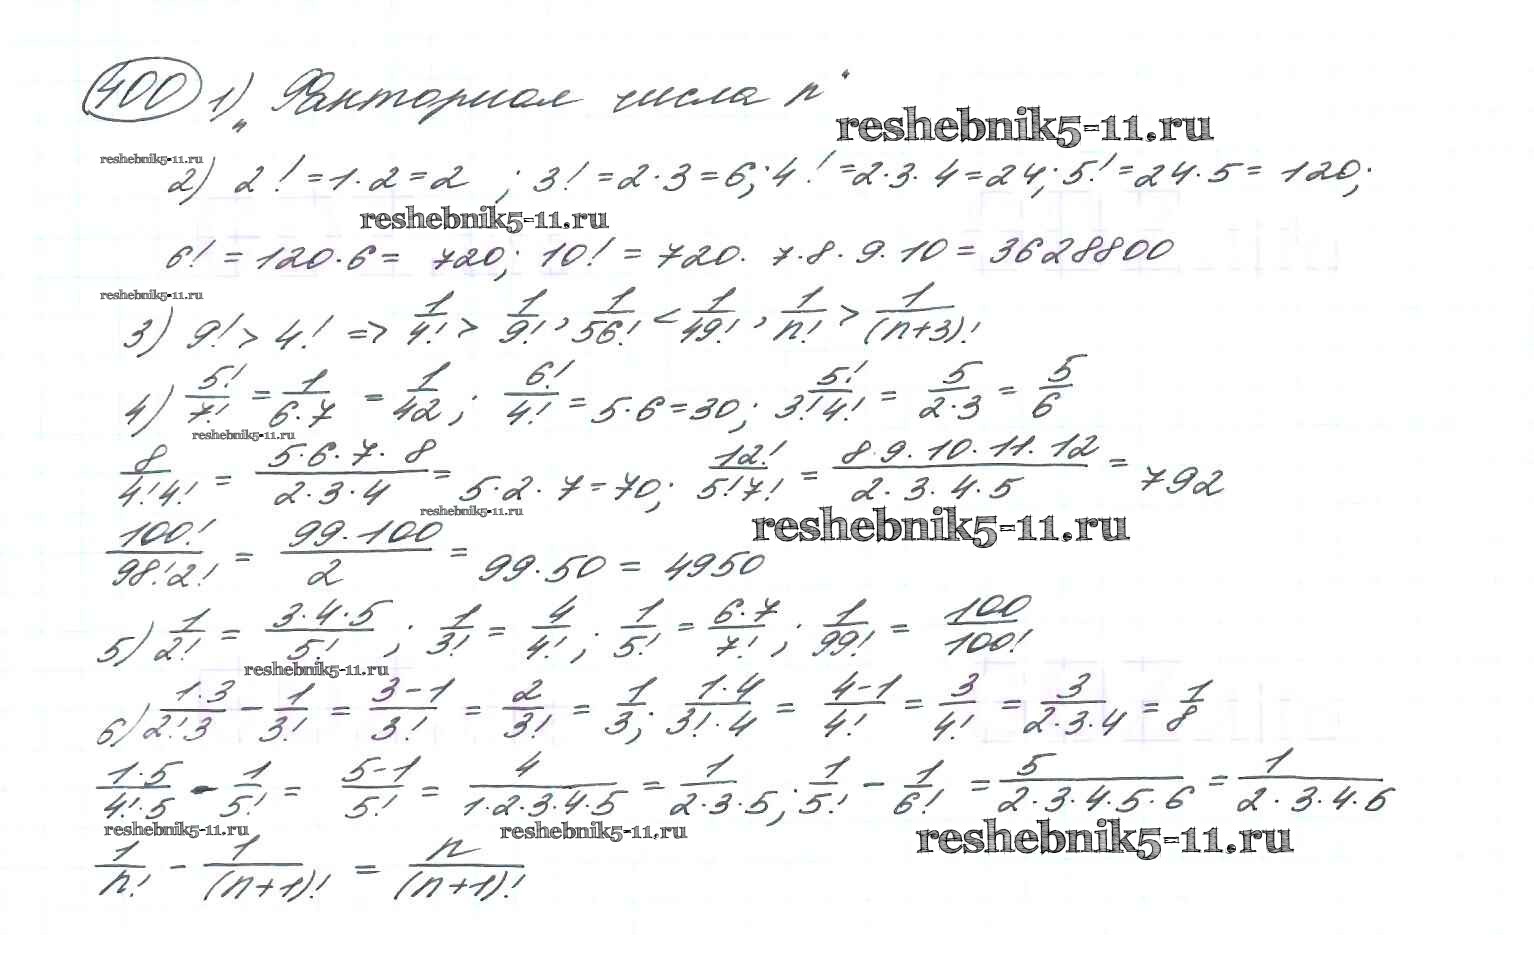 400 1) „Факториал числа n“
reshebnik5-11.ru
reshebnik5-11.ru
2) 2! = 1·2 = 2 ; 3! = 2·3 = 6; 4! = 2·3·4 = 24; 5! = 24·5 = 120;
reshebnik5-11.ru
6! = 120·6 = 720; 10! = 720·7·8·9·10 = 3628800
reshebnik5-11.ru
3) 9! > 4! => 1/4! > 1/9!, 1/56! < 1/49!, 1/n! > 1/(n+3)!
4) 5!/7! = 1/(6·7) = 1/42; 6!/4! = 5·6 = 30; 5!/(3!4!) = 5/(2·3) = 5/6
reshebnik5-11.ru
8/(4!4!) = (5·6·7·8)/(2·3·4) = 5·2·7 = 70; 12!/(5!7!) = (8·9·10·11·12)/(2·3·4·5) = 792
reshebnik5-11.ru
reshebnik5-11.ru
100!/(98!2!) = (99·100)/2 = 99·50 = 4950
5) 1/2! = (3·4·5)/5!; 1/3! = 4/4!; 1/5! = (6·7)/7!; 1/99! = 100/100!
reshebnik5-11.ru
6) (1·3)/(2!·3) - 1/3! = (3-1)/3! = 2/3! = 1/3; (1·4)/(3!·4) = (4-1)/4! = 3/4! = 3/(2·3·4) = 1/8
(1·5)/(4!·5) - 1/5! = (5-1)/5! = 4/(1·2·3·4·5) = 1/(2·3·5); 1/5! - 1/6! = 5/(2·3·4·5·6) = 1/(2·3·4·6)
reshebnik5-11.ru
reshebnik5-11.ru
reshebnik5-11.ru
1/n! - 1/(n+1)! = n/(n+1)!